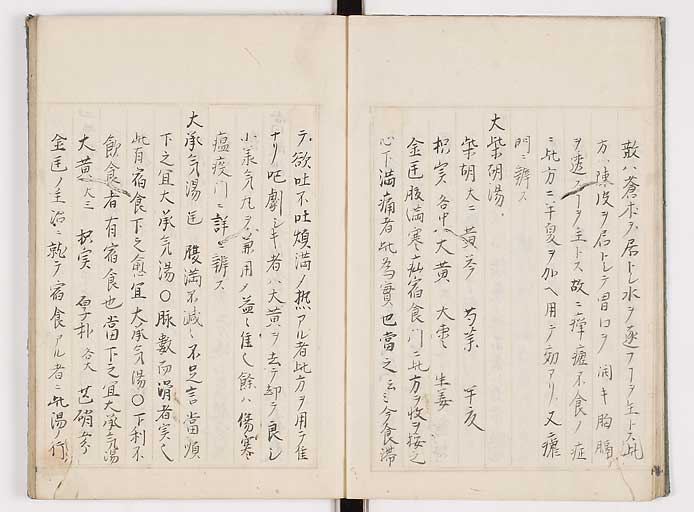 散ハ蒼朮ヲ居トシ水ヲ逐フヿヲ主トス此
方ハ陳皮ヲ居トシテ胃口ヲ開キ胸膈
ヲ透スヿヲ主トス故ニ瘅瘧不食ノ症
ニ此方ニ半夏ヲ加ヘ用テ効アリ又瘧
門ニ辨ス
大柴胡湯
柴胡大二 黄芩 芍薬 半夏
枳実各中 大黄 大棗 生姜
金匱腹満寒疝宿食門ニ此方ヲ收ヲ按之
心下満痛者此為實也當之云々今食滞
テ欲吐不吐煩満ノ熱アル者此方ヲ用テ佳
ナリ吐劇シキ者ハ大黄ヲ去テ却テ良シ
小承気丸ヲ兼用ノ益〻佳〻餘ハ傷寒
瘟疫門ニ詳ニ辨ス
大承気湯 匱 腹満不減〻不足言當須
下之宜大承気湯〇脉數而滑者実〻
此有宿食下之愈宜大承気湯〇下利不
飲食者有宿食也當下之宜大承気湯
大黄大三 枳実 厚朴 各大 芒硝
金匱ノ主治ニ就テ宿食アル者ニ此湯ノ行